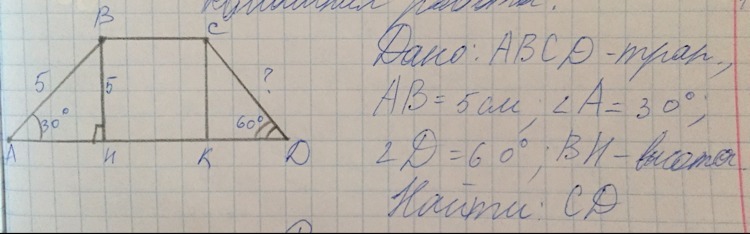 домашняя работа.
B C
5 5 ?
30° 60°
A H K D
Дано: ABCD - трап.,
AB = 5 см; ∠A = 30°;
∠D = 60°; BH - высота.
Найти: CD